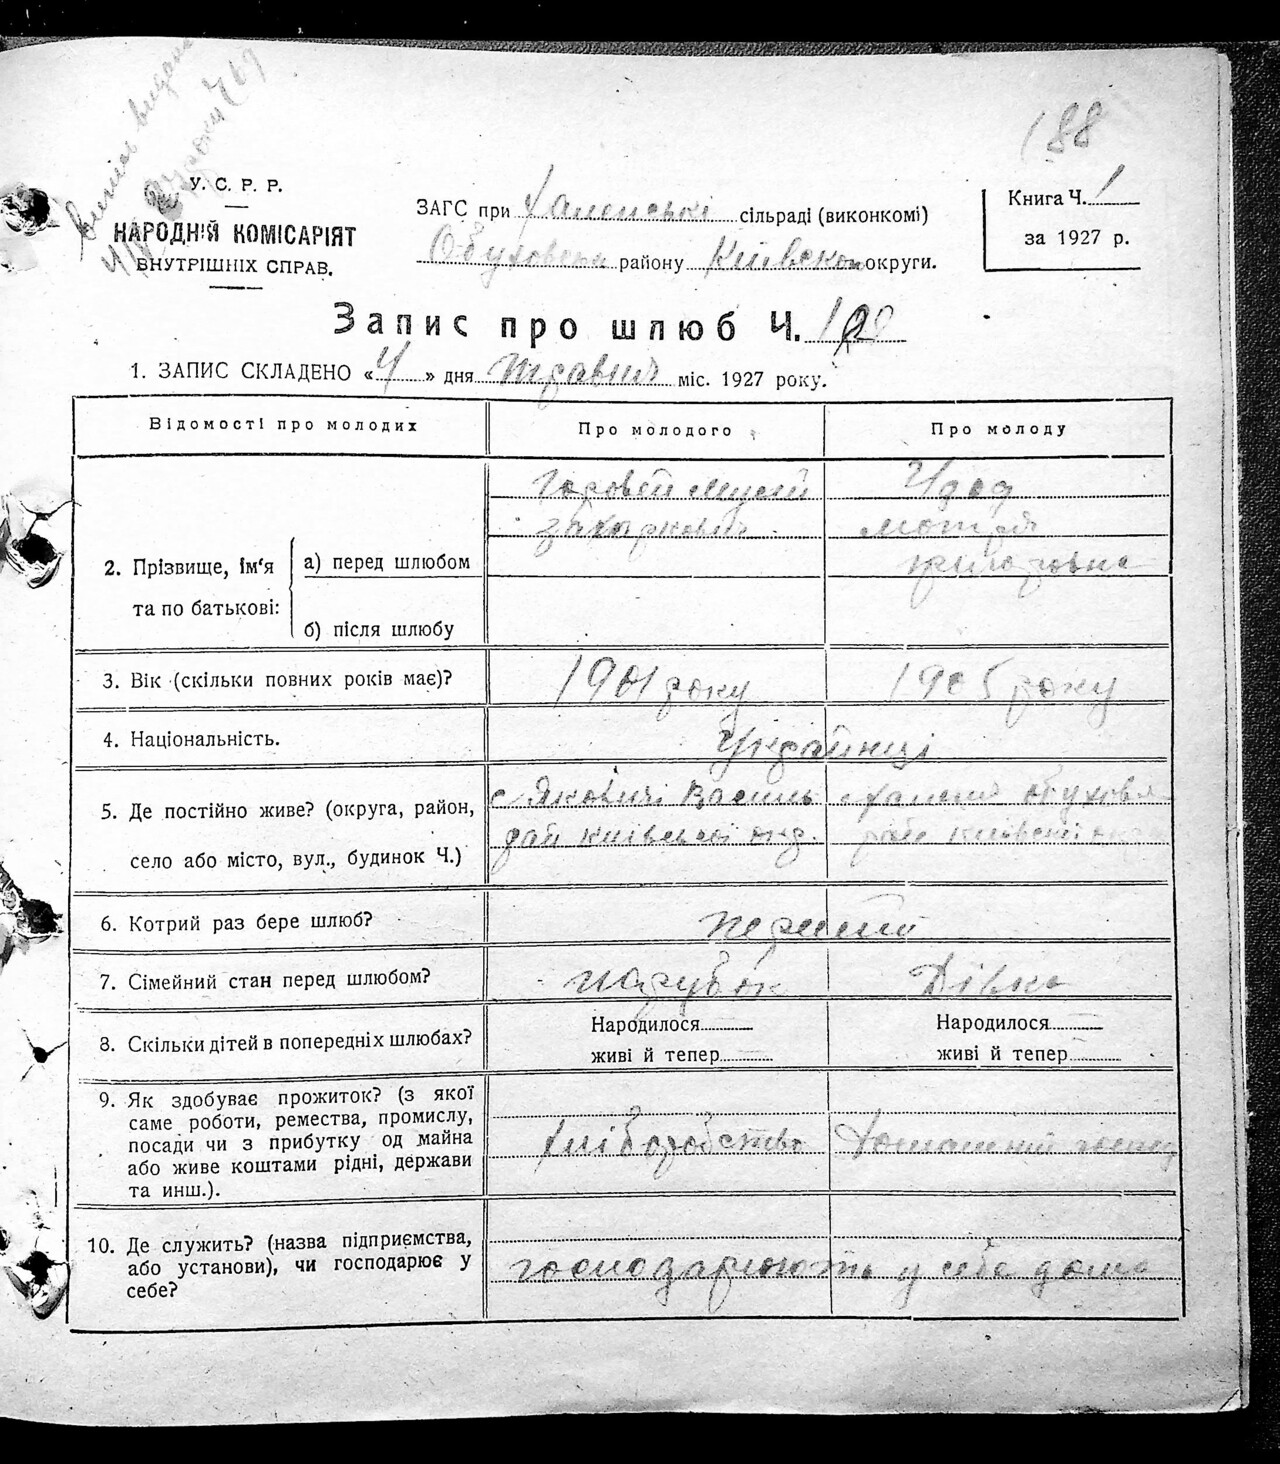 188
У. С. Р. Р.
НАРОДНІЙ КОМІСАРІЯТ
ВНУТРІШНІХ СПРАВ.
ЗАГС при Халепські сільраді (виконкомі)
Обуховськ району Київсько округи.
Книга Ч. 1
за 1927 р.
Запис про шлюб Ч.
1. ЗАПИС СКЛАДЕНО «4» дня травня міс. 1927 року.
Відомості про молодих Про молодого Про молоду
2. Прізвище, ім'я та по батькові:
а) перед шлюбом
б) після шлюбу
Мусій
Захаркович
Мотря
3. Вік (скільки повних років має)? 1901 року 1905 року
4. Національність. Українці
5. Де постійно живе? (округа, район,
село або місто, вул., будинок Ч.)
с. Яковичі Василь
рай Київської окр.
Обухов
рай Київської
6. Котрий раз бере шлюб? перший
7. Сімейний стан перед шлюбом? парубок Дівка
8. Скільки дітей в попередніх шлюбах? Народилося Народилося
живі й тепер живі й тепер
9. Як здобуває прожиток? (з якої
саме роботи, ремества, промислу,
посади чи з прибутку од майна
або живе коштами рідні, держави
та инш.).
хліборобство домашній
10. Де служить? (назва підприємства,
або установи), чи господарює у
себе?
господарюють у себе дома